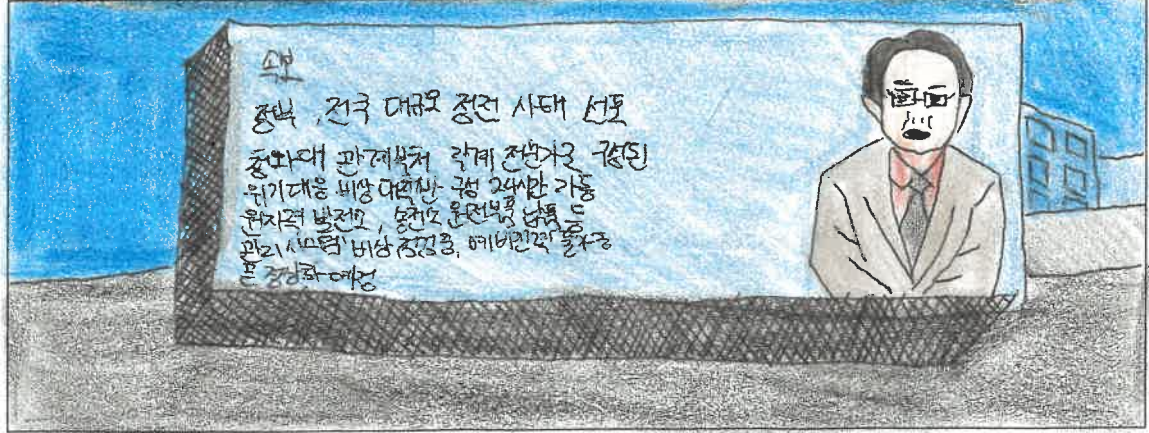 속보
정부, 전국 대규모 정전 사태 선포
청와대 관계부처 각계 전문가로 구성된
위기대응 비상대책반 구성 24시간 가동
원자력 발전소, 송전소 운전부품 납품 등
관리 시스템 비상 점검중, 예비전력
곧 정상화 예정